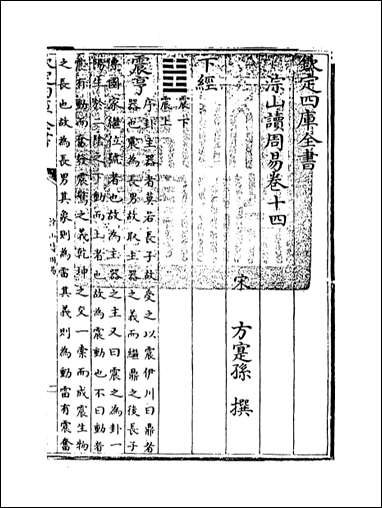 欽定四庫全書
淙山讀周易卷十四
宋 方寔孫 撰
下經
震下
震上
震亨
序卦主器者莫若長子故受之以震伊川曰鼎者
器也震為長男故取主器之義而繼鼎之後長子
傳國家繼位號者也故為主器之主又曰震之為卦一
陽生於二陰之下動而上者也故為震動也不曰動者
震有動而奮發震驚之義乾坤之交一索而成震生物
之長也故為長男其象則為雷其義則為動雷有震奮